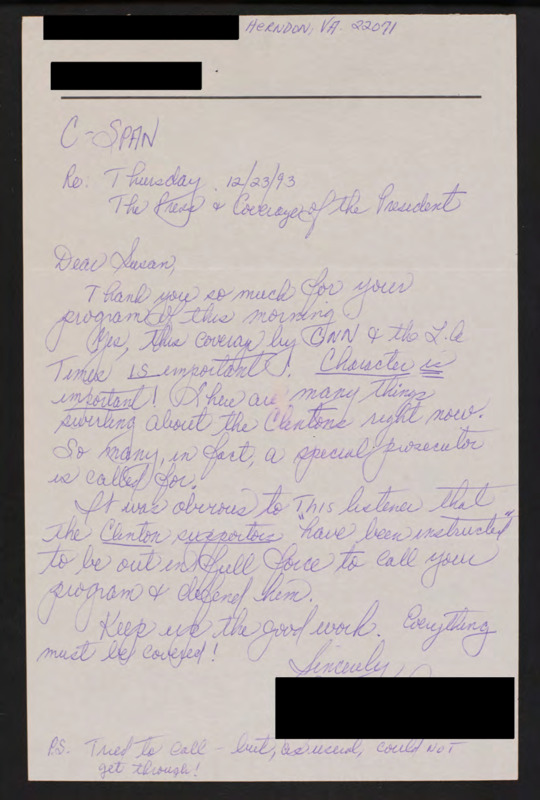 HERNDON, VA. 22071
C-SPAN
Re: Thursday 12/23/93
The Press & Coverage of the President
Dear Susan,
Thank you so much for your
program of this morning
Yes, this coverage by CNN & the L.A
Times IS important! Character is
important! There are many things
swirling about the Clintons right now.
So many, in fact, a special prosecutor
is called for.
It was obvious to This listener that
the Clinton supporters "have been instructed"
to be out in full force to call your
program & defend them.
Keep up the good work. Everything
must be covered!
Sincerely
P.S. Tried to call - but, as usual, could NOT
get through!